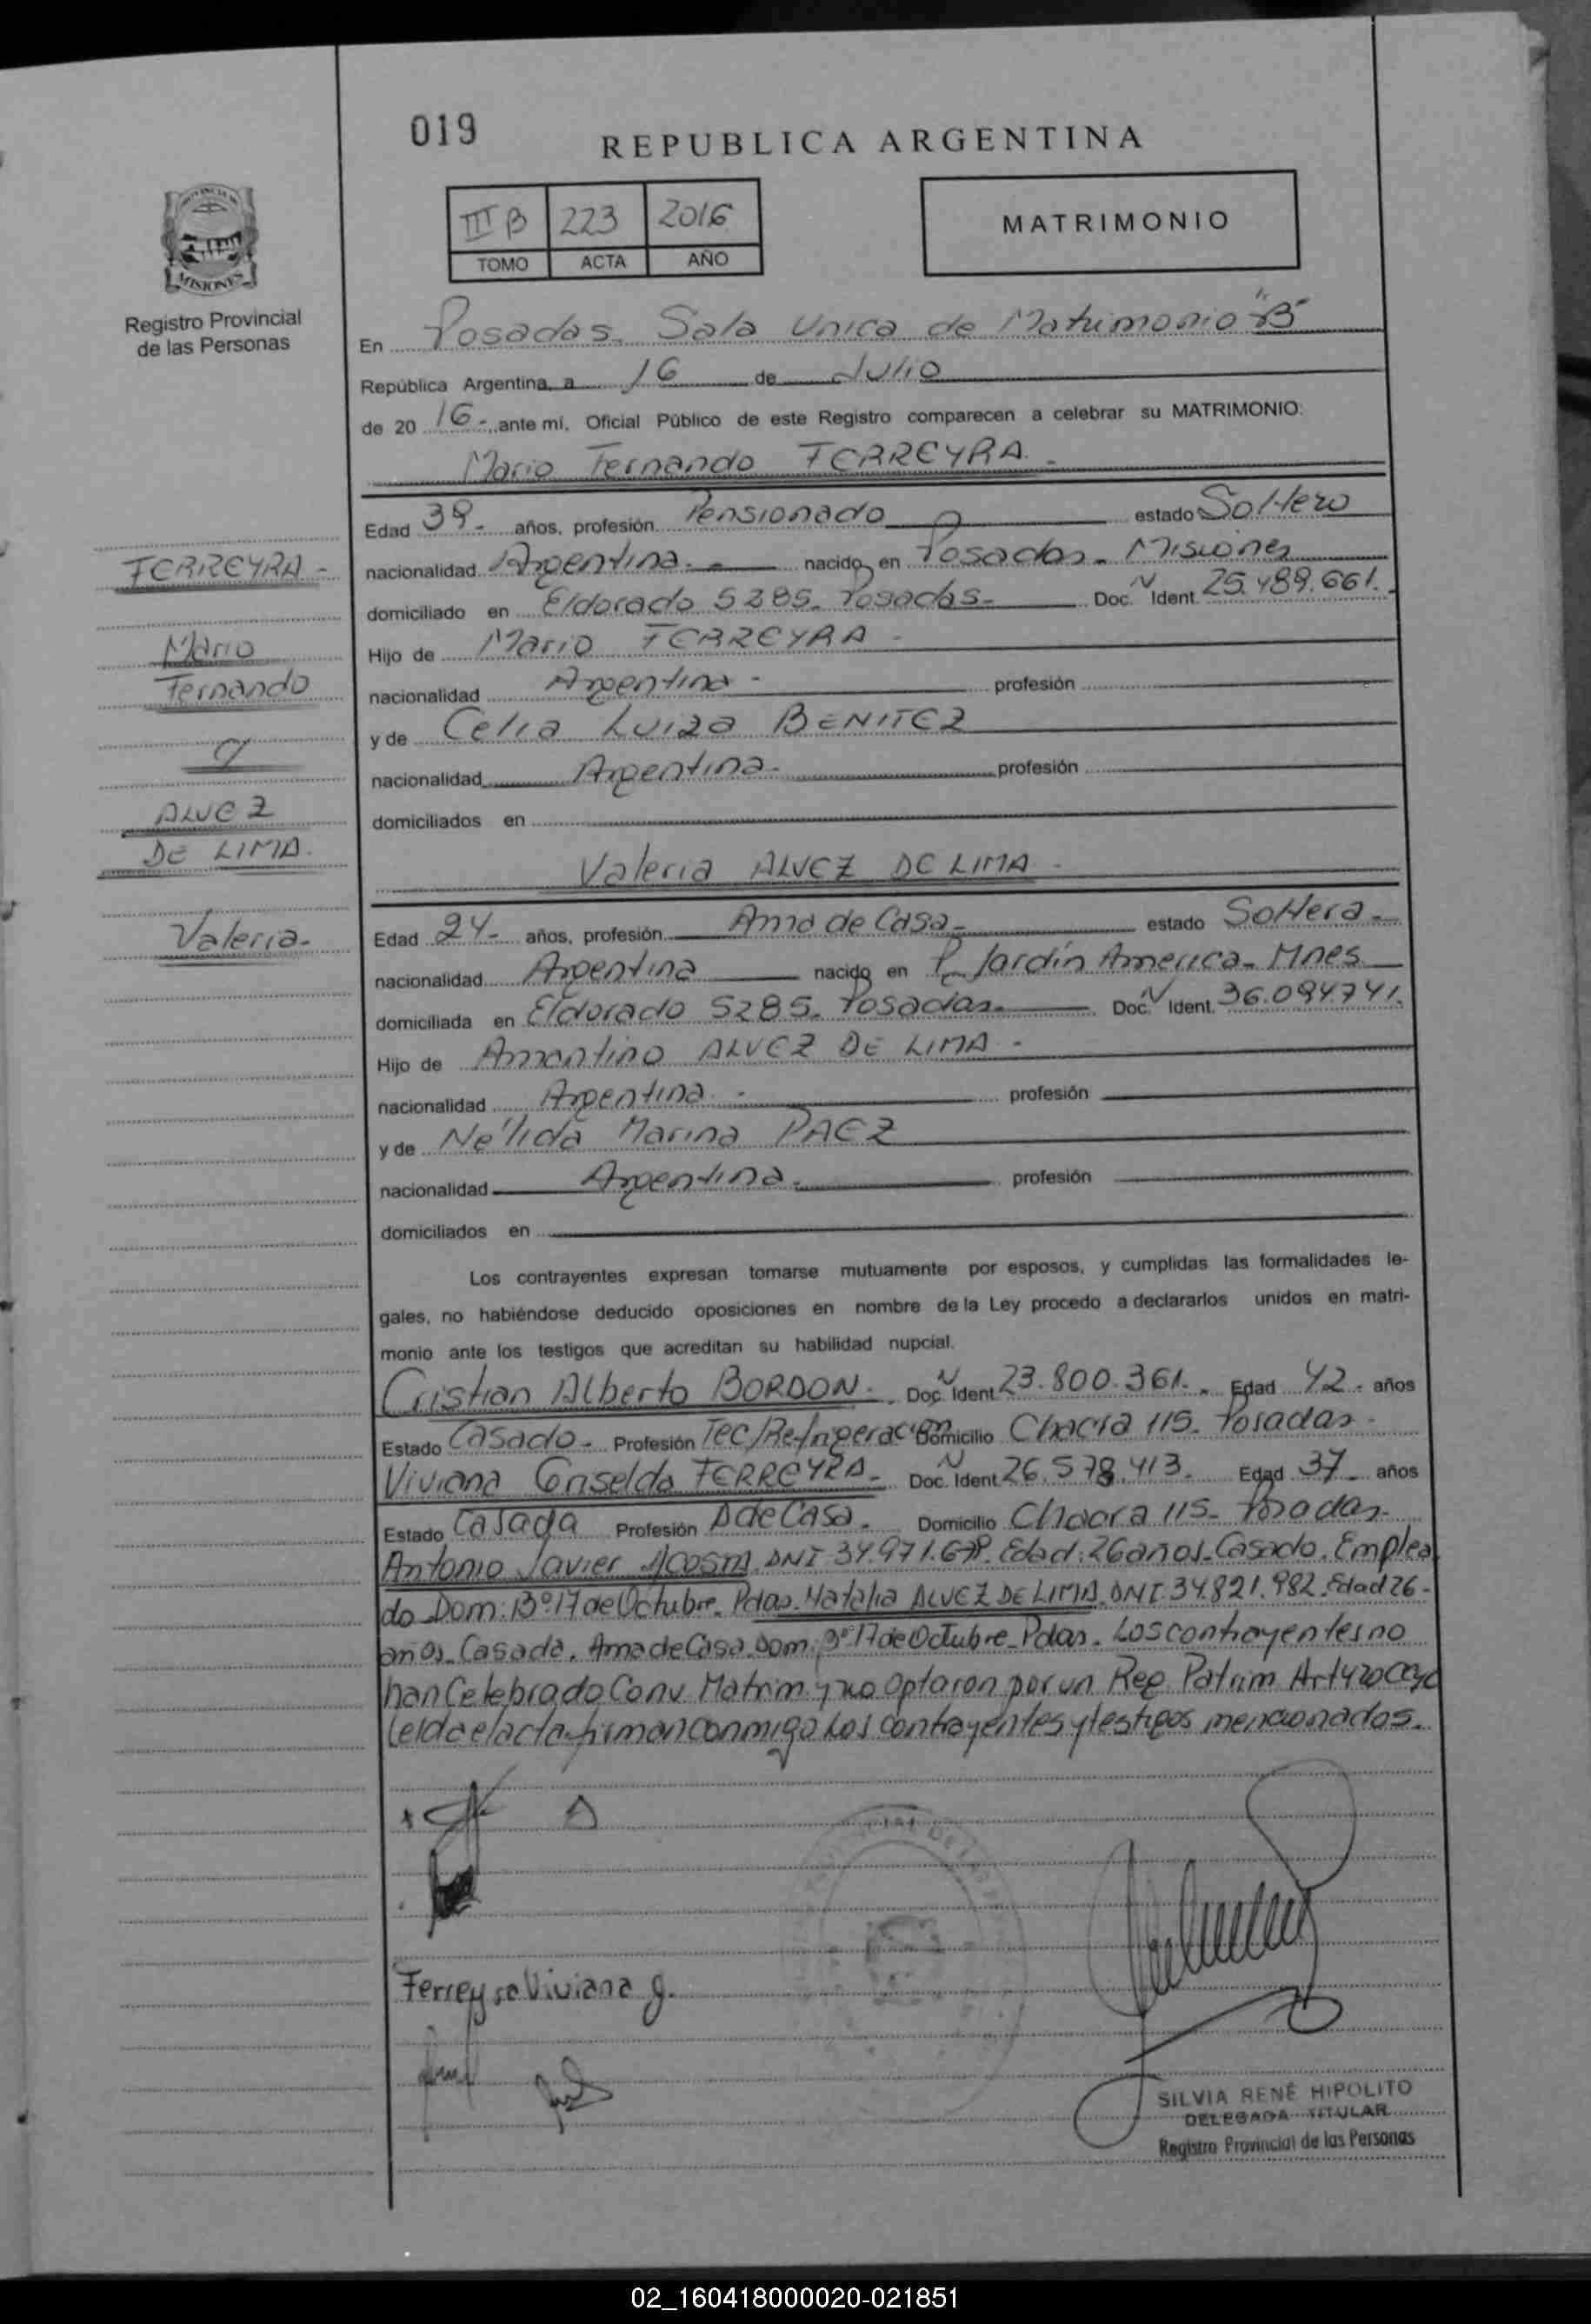 019
REPUBLICA ARGENTINA
III B 223 2016
TOMO ACTA AÑO
MATRIMONIO
MISIONES
Registro Provincial
de las Personas
En Posadas. Sala Unica de Matrimonio "B"
República Argentina, a 16 de Julio
de 20 16.- ante mí, Oficial Público de este Registro comparecen a celebrar su MATRIMONIO:
Mario Fernando FERREYRA.-
Edad 39.- años, profesión Pensionado estado Soltero
nacionalidad Argentina.- nacido en Posadas - Misiones
domiciliado en Eldorado 5285. Posadas- Doc. N Ident. 25.489.661.
Hijo de Mario FERREYRA -
nacionalidad Argentina - profesión
y de Celia Luiza BENITEZ
nacionalidad Argentina- profesión
domiciliados en
FERREYRA -
Mario
Fernando
y
ALVEZ
DE LIMA.
Valeria-
Valeria ALVEZ DE LIMA -
Edad 24- años, profesión Ama de Casa- estado Soltera-
nacionalidad Argentina nacido en Jardín America- Mnes
domiciliada en Eldorado 5285. Posadas- Doc. N Ident. 36.094.741.
Hijo de Amantino ALVEZ DE LIMA -
nacionalidad Argentina - profesión
y de Nélida Marina PAEZ
nacionalidad Argentina. profesión
domiciliados en
Los contrayentes expresan tomarse mutuamente por esposos, y cumplidas las formalidades le-
gales, no habiéndose deducido oposiciones en nombre de la Ley procedo a declararlos unidos en matri-
monio ante los testigos que acreditan su habilidad nupcial.
Cristian Alberto BORDON. Doc. N Ident. 23.800.361. Edad 42- años
Estado Casado- Profesión Tec/Refrigeracion Domicilio Chacra 115- Posadas-
Viviana Griselda FERREYRA- Doc. N Ident. 26.578.413. Edad 37 años
Estado Casada Profesión A de Casa. Domicilio Chacra 115- Posadas-
Antonio Javier ACOSTA. DNI 34.971. Edad: 26 años- Casado. Emplea
do Dom: B° 17 de Octubre. Pdas. Natalia ALVEZ DE LIMA. DNI. 34.821.982. Edad 26-
años- Casada. Ama de Casa. Dom: B° 17 de Octubre- Pdas. Los contrayentes no
han Celebrado Conv. Matrim. y no Optaron por un Reg. Patrim. Art 420 CCyC
Leída el acta firman conmigo Los contrayentes y testigos mencionados.
Ferreyra Viviana g.
SILVIA RENÉ HIPOLITO
DELEGADA TITULAR
Registro Provincial de las Personas
02_160418000020-021851